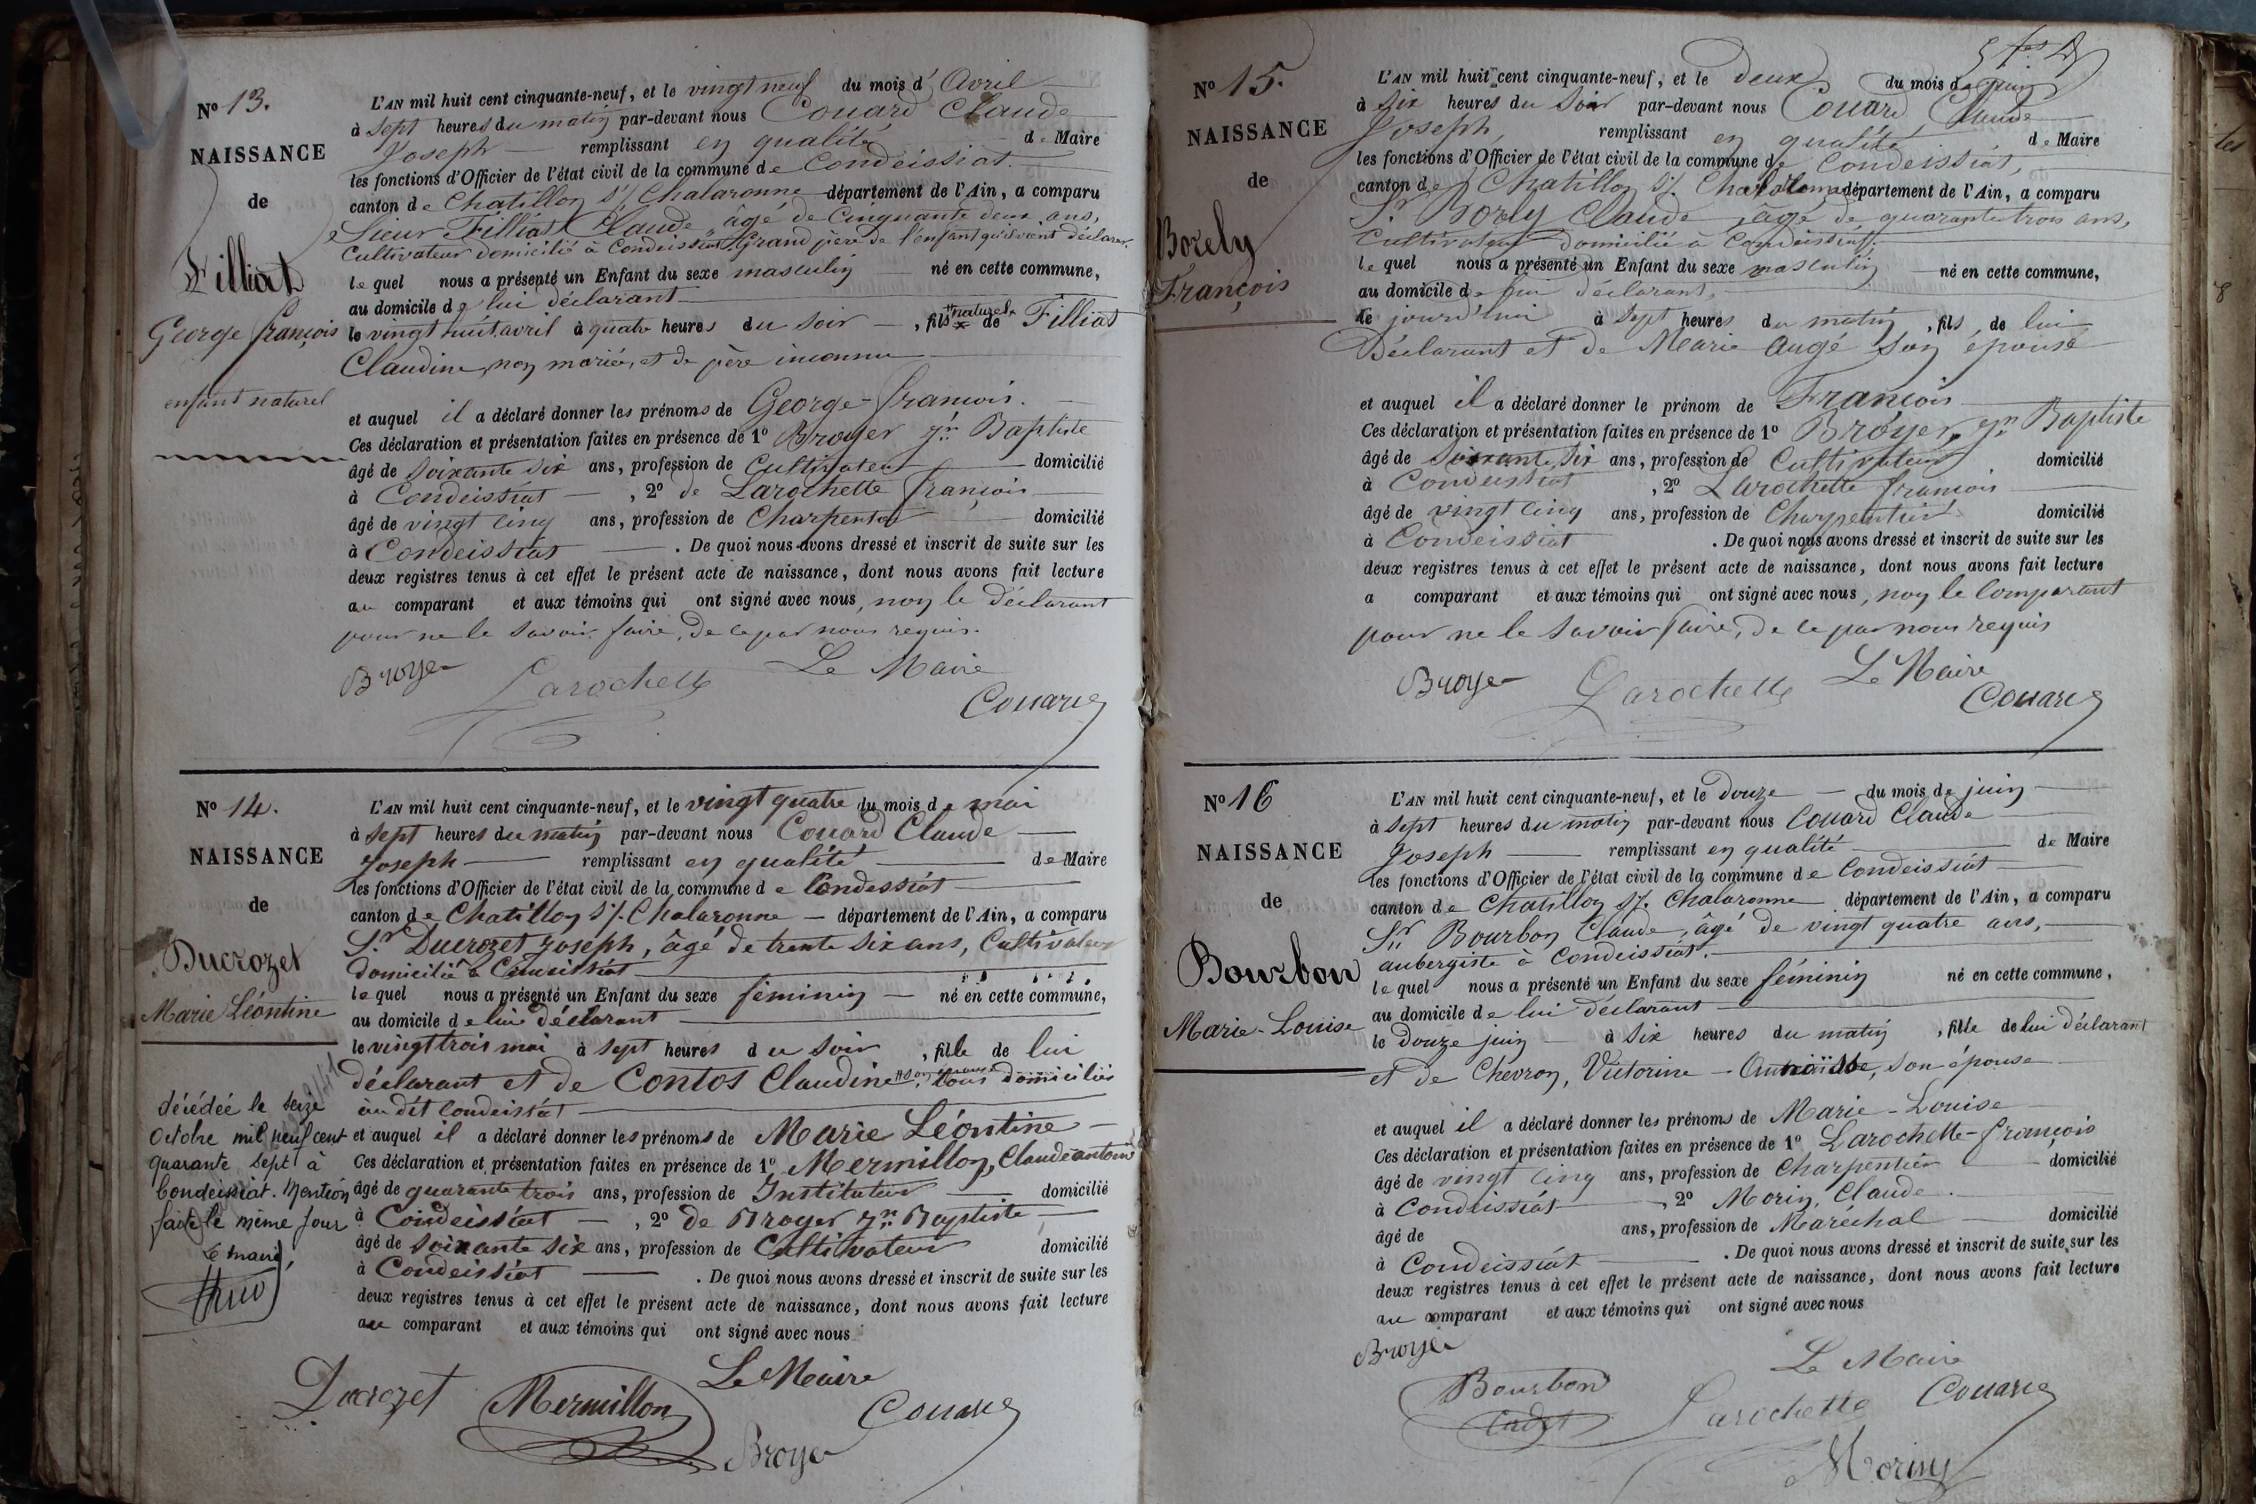 N° 13.
NAISSANCE
de
Filliat
George françois
enfant naturel
L'AN mil huit cent cinquante-neuf, et le vingt neuf du mois d' Avril
à sept heures du matin par-devant nous Couard Claude
Joseph remplissant en qualité de Maire
les fonctions d'Officier de l'état civil de la commune de Condeissiat.
canton de Chatillon s/. Chalaronne département de l'Ain, a comparu
Sieur Filliat Claude, âgé de Cinquante deux ans,
Cultivateur domicilié à Condeissiat, Grand père de l'enfant qu'il vient déclarer.
lequel nous a présenté un Enfant du sexe masculin né en cette commune,
au domicile de lui déclarant
le vingt huit avril à quatre heures du soir, fils naturel de Filliat
Claudine, non mariée, et de père inconnu
et auquel il a déclaré donner les prénoms de George-françois.
Ces déclaration et présentation faites en présence de 1° Broyer Jn Baptiste
âgé de soixante six ans, profession de Cultivateur domicilié
à Condeissiat, 2° de Larochette françois
âgé de vingt cinq ans, profession de Charpentier domicilié
à Condeissiat. De quoi nous avons dressé et inscrit de suite sur les
deux registres tenus à cet effet le présent acte de naissance, dont nous avons fait lecture
au comparant et aux témoins qui ont signé avec nous, non le déclarant
pour ne le savoir faire, de ce par nous requis.
Broyer Larochette Le Maire
Couard
N° 14.
NAISSANCE
de
Ducrozet
Marie Léontine
décédée le seize
Octobre mil neuf cent
quarante sept à
Condeissiat. Mention
faite le même jour
Le maire,
L'AN mil huit cent cinquante-neuf, et le vingt quatre du mois de mai
à sept heures du matin par-devant nous Couard Claude
Joseph remplissant en qualité de Maire
les fonctions d'Officier de l'état civil de la commune de Condessiat
canton de Chatillon s/. Chalaronne département de l'Ain, a comparu
Sr Ducrozet Joseph, âgé de trente six ans, Cultivateur
domicilié à Condeissiat
lequel nous a présenté un Enfant du sexe féminin né en cette commune,
au domicile de lui déclarant
le vingt trois mai à sept heures du soir, fille de lui
déclarant et de Contos Claudine son épouse, tous domiciliés
au dit Condeissiat
et auquel il a déclaré donner les prénoms de Marie Léontine
Ces déclaration et présentation faites en présence de 1° Mermillon, Claude antoine
âgé de quarante trois ans, profession de Instituteur domicilié
à Condeissiat, 2° de Broyer Jn Baptiste
âgé de soixante six ans, profession de Cultivateur domicilié
à Condeissiat. De quoi nous avons dressé et inscrit de suite sur les
deux registres tenus à cet effet le présent acte de naissance, dont nous avons fait lecture
au comparant et aux témoins qui ont signé avec nous
Ducrozet Mermillon Le Maire
Couard
Broyer
N° 15.
NAISSANCE
de
Borely
François
L'AN mil huit cent cinquante-neuf, et le deux du mois de juin
à six heures du soir par-devant nous Couard Claude
Joseph, remplissant en qualité de Maire
les fonctions d'Officier de l'état civil de la commune de Condeissiat,
canton de Chatillon s/. Chalaronne département de l'Ain, a comparu
Sr Borely Claude, âgé de quarante trois ans,
Cultivateur domicilié à Condeissiat,
lequel nous a présenté un Enfant du sexe masculin né en cette commune,
au domicile de lui déclarant,
le jourd'hui à sept heures du matin, fils de lui
Déclarant et de Marie Augé son épouse
et auquel il a déclaré donner le prénom de François
Ces déclaration et présentation faites en présence de 1° Broyer, Jn Baptiste
âgé de soixante six ans, profession de Cultivateur domicilié
à Condeissiat, 2° Larochette françois
âgé de vingt cinq ans, profession de Charpentier domicilié
à Condeissiat. De quoi nous avons dressé et inscrit de suite sur les
deux registres tenus à cet effet le présent acte de naissance, dont nous avons fait lecture
a comparant et aux témoins qui ont signé avec nous, non le Comparant
pour ne le savoir faire, de ce par nous requis
Broyer Larochette Le Maire
Couard
N° 16
NAISSANCE
de
Bourbon
Marie-Louise
L'AN mil huit cent cinquante-neuf, et le douze du mois de juin
à sept heures du matin par-devant nous Couard Claude
Joseph remplissant en qualité de Maire
les fonctions d'Officier de l'état civil de la commune de Condeissiat
canton de Chatillon s/. Chalaronne département de l'Ain, a comparu
Sr Bourbon Claude, âgé de vingt quatre ans,
aubergiste à Condeissiat.
lequel nous a présenté un Enfant du sexe féminin né en cette commune,
au domicile de lui déclarant
le douze juin à six heures du matin, fille de lui déclarant
et de Chevron, Victorine - son épouse
et auquel il a déclaré donner les prénoms de Marie-Louise
Ces déclaration et présentation faites en présence de 1° Larochette-françois
âgé de vingt cinq ans, profession de Charpentier domicilié
à Condeissiat, 2° Morin, Claude.
âgé de ans, profession de Maréchal domicilié
à Condeissiat. De quoi nous avons dressé et inscrit de suite sur les
deux registres tenus à cet effet le présent acte de naissance, dont nous avons fait lecture
au comparant et aux témoins qui ont signé avec nous
Broyer
Bourbon Le Maire
Cadet Larochette Couard
Morin